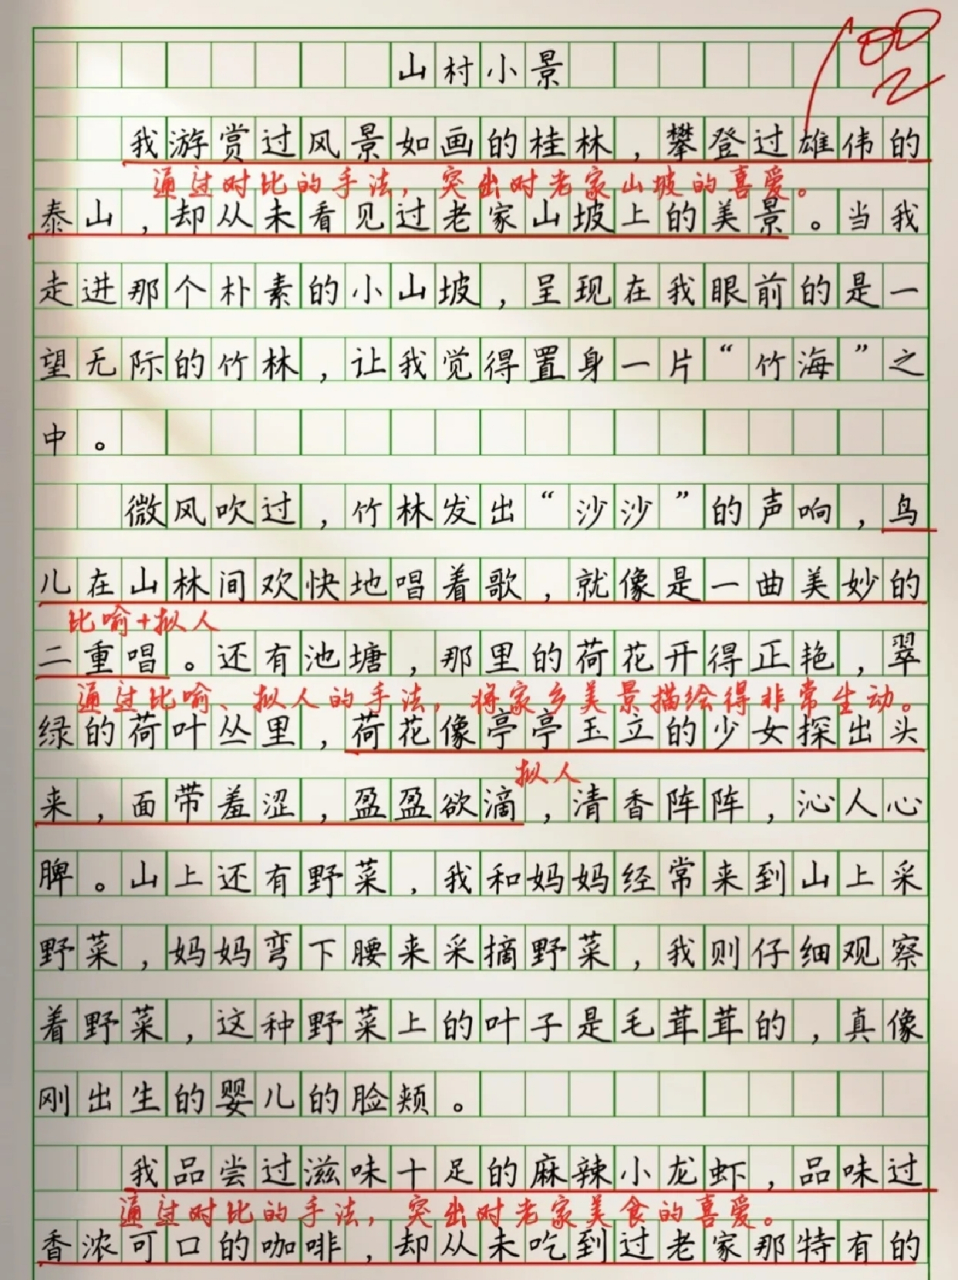 山村小景
100
我游赏过风景如画的桂林，攀登过雄伟的
通过对比的手法，突出对老家山坡的喜爱。
泰山，却从未看见过老家山坡上的美景。当我
走进那个朴素的小山坡，呈现在我眼前的是一
望无际的竹林，让我觉得置身一片“竹海”之
中。
微风吹过，竹林发出“沙沙”的声响，鸟
儿在山林间欢快地唱着歌，就像是一曲美妙的
比喻+拟人
二重唱。还有池塘，那里的荷花开得正艳，翠
通过比喻、拟人的手法，将家乡美景描绘得非常生动。
绿的荷叶丛里，荷花像亭亭玉立的少女探出头
拟人
来，面带羞涩，盈盈欲滴，清香阵阵，沁人心
脾。山上还有野菜，我和妈妈经常来到山上采
野菜，妈妈弯下腰来采摘野菜，我则仔细观察
着野菜，这种野菜上的叶子是毛茸茸的，真像
刚出生的婴儿的脸颊。
我品尝过滋味十足的麻辣小龙虾，品味过
通过对比的手法，突出对老家美食的喜爱。
香浓可口的咖啡，却从未吃到过老家那特有的